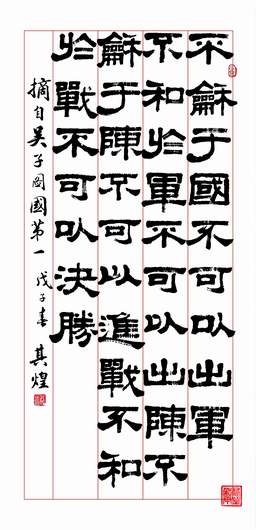 不龢于國不可以出軍
不和於軍不可以出陳不
龢于陳不可以進戰不和
於戰不可以決勝
摘自吴子圖國第一 戊子春 其煌